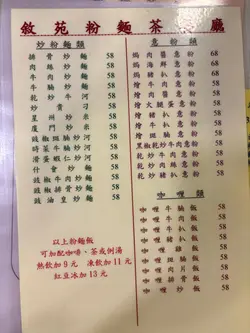 敘苑粉麵茶 廳
炒粉麵類
排骨炒麵 58
肉絲炒麵 58
牛肉炒麵 58
牛腩炒麵 58
乾炒牛河 58
炒貴刁 58
星州炒米 58
廈門炒米 58
豉椒 炒河 58
時菜牛肉炒河 58
滑蛋蝦仁炒河 58
什會炒麵 58
豉椒 炒麵 58
豉油皇炒麵 58
以上粉麵飯
可加配咖啡、茶或例湯
熱飲加9元 凍飲加11元
紅豆冰加13元
意粉類
焗肉醬意粉 68
焗海鮮意粉 68
焗豬扒意粉 68
燴牛肉意粉 58
燴火腿蛋意粉 58
燴肉醬意粉 58
燴 扒意粉 58
燴豬扒意粉 58
燴斑腩意粉 58
黑椒乾炒牛肉意粉 58
乾炒牛肉意粉 58
乾炒肉絲意粉 58
咖喱類
咖喱牛腩飯 58
咖喱牛肉飯 58
咖喱豬扒飯 58
咖喱雞飯 58
咖喱斑腩飯 58
咖喱肉片飯 58
咖喱排骨飯 58
咖喱 炒飯 58